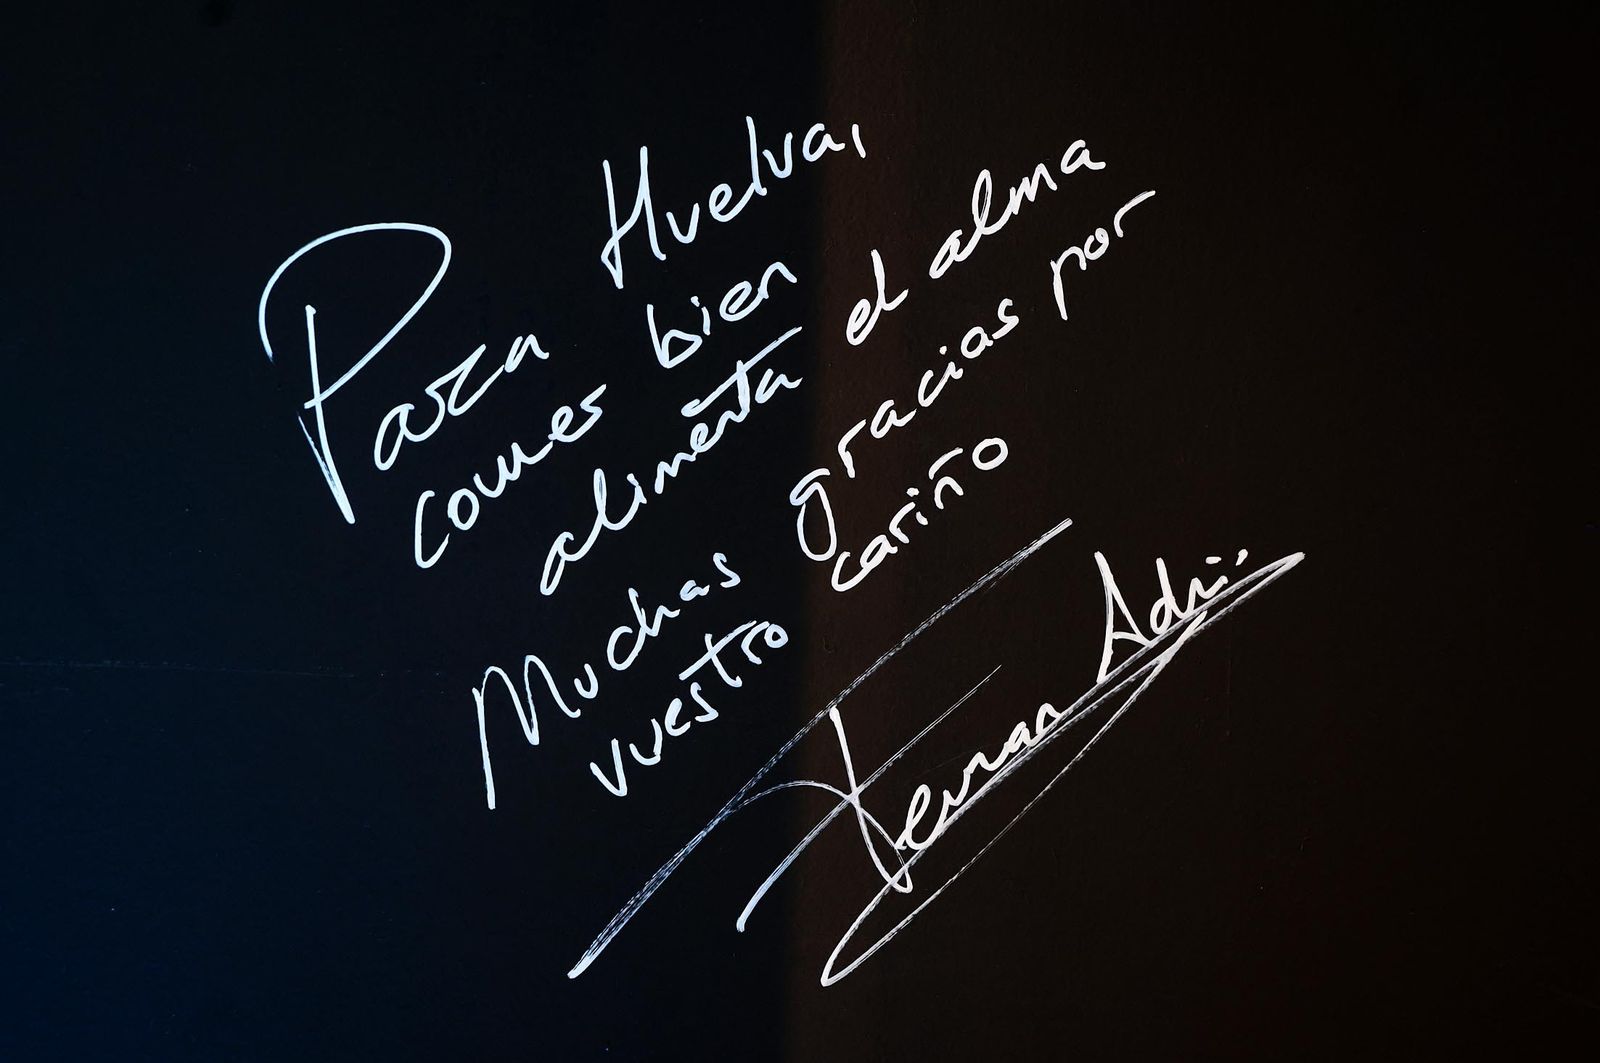 Para Huelva,
comer bien
alimenta el alma
Muchas gracias por
vuestro cariño
Ferran Adrià